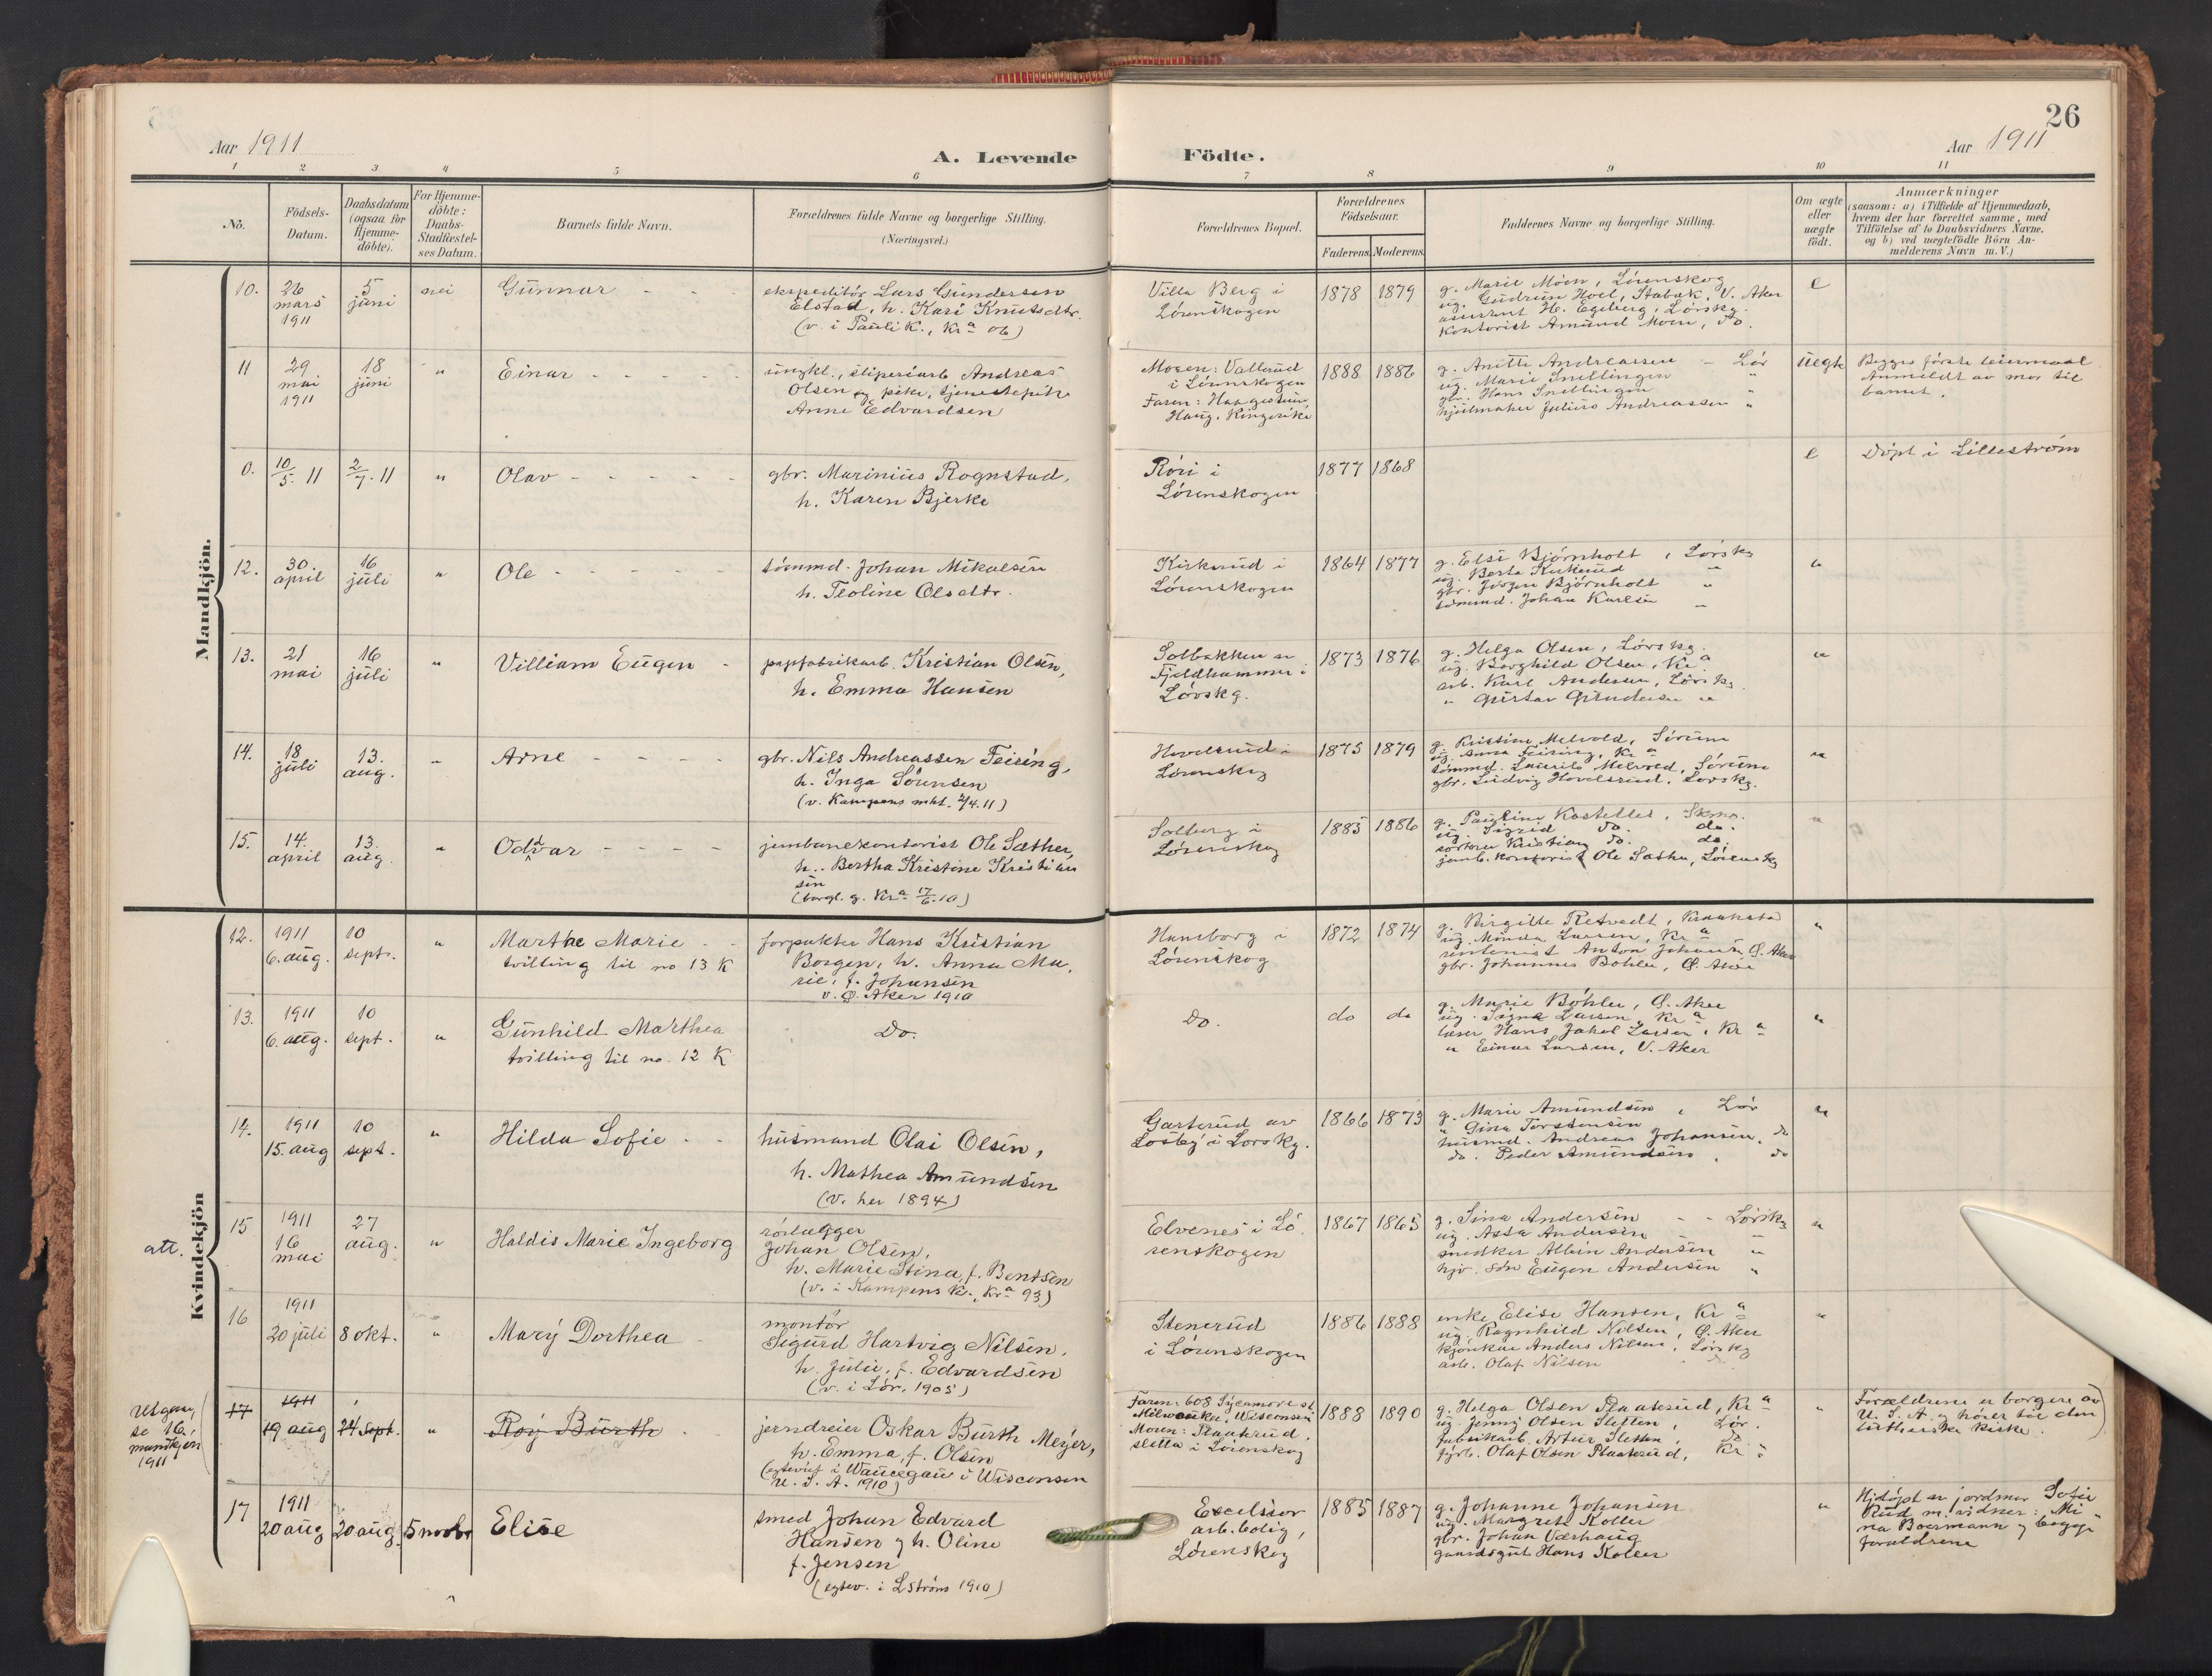 26
Aar 1911
A. Levende
Födte.
Aar 1911
1 2 3 4 5 6 7 8 9 10 11
No.
Födsels-
Datum.
Daabsdatum
(ogsaa for
Hjemme-
döbte).
For Hjemme-
döbte:
Daabs-
Stadfæstel-
ses Datum.
Barnets fulde Navn.
Forældrenes fulde Navne og borgerlige Stilling.
(Næringsvei.)
Forældrenes Bopæl.
Forældrenes
Födselsaar.
Faderens. Moderens.
Faddernes Navne og borgerlige Stilling.
Om ægte
eller
uægte
födt.
Anmærkninger
(saasom: a) i Tilfælde af Hjemmedaab,
hvem der har forrettet samme, med
Tilföielse af to Daabsvidners Navne,
og b) ved uægtefödte Börn An-
melderens Navn m. V.)
Mandkjön.
10.
26
mars
1911
5
juni
nei
Gunnar - -
ekspeditör Lars Gundersen
Elstad, h. Kari Knutsdtr.
(v. i Pauli K., Kra 06)
Villa Berg i
Lörenskogen
1878 1879
g. Marie Moen, Lörenskog
ug. Gudrun Hoel, Stabæk, V. Aker
assistent H. Egeberg, Lörskg.
kontorist Amund Moen, do.
e
11
29
mai
1911
18
juni
"
Einar - - - -
ungkl., sliperiarb Andreas
Olsen og pike, tjenestepike
Anne Edvardsen
Moren: Vallerud
i Lörenskogen
Faren:
Haug, Ringerike
1888 1886
g. Anette Andreassen - Lör
ug. Marie Snellingen "
gbr. Hans Snellingen "
hjulmaker Julius Andreassen "
uegte
Begges förste leiermaal
Anmeldt av mor til
barnet.
0.
10/5. 11
2/7. 11
"
Olav - - - - -
gbr. Marinius Rognstad,
h. Karen Bjerke
Röri i
Lörenskogen
1877 1868
e
Döpt i Lilleström
12.
30
april
16
juli
"
Ole - - - - -
tömmd. Johan Mikalsen
h. Teoline Olsdtr.
Kirkerud i
Lörenskogen
1864 1877
g. Else Björnholt, Lörskg
ug. Berta Kirkerud "
gbr. Jörgen Björnholt "
tömmd. Johan Karlsen "
"
13.
21
mai
16
juli
"
Villiam Eugen -
papfabrikarb. Kristian Olsen,
h. Emma Hansen
Solbakken av
Fjeldhammer i
Lörskg.
1873 1876
g. Helga Olsen, Lörskg.
ug. Borghild Olsen, Kra
arb. Karl Andersen, Lörskg.
" Gustav Gundersen "
"
14.
18
juli
13.
aug.
"
Arne - - - -
gbr. Nils Andreassen Feiring,
h. Inga Sörensen
(v. Kampens mkt. 2/4.11)
Hovelsrud i
Lörenskog
1875 1879
g. Kristine Melvold, Sörum
ug. Anna Feiring, Kra
tömmd. Laurits Melvold, Sörum
gbr. Ludvig Hovelsrud, Lörskg.
"
15.
14.
april
13.
aug.
"
Oddvar - - - -
jernbanekontorist Ole Sæther,
h. Bertha Kristine Kristian
sen
(borgl. g. Kra 17/6.10)
Solberg i
Lörenskog
1885 1886
g. Pauline Kastellet, Skmo.
ug. Sigrid do. do.
sortorer Kristian do. do.
jernb. kontorist Ole Sæther, Lörenskg
"
Kvindekjön
12.
1911
6. aug.
10
sept.
"
Marthe Marie - -
tvilling til no 13 K
forpakter Hans Kristian
Borgen, h. Anna Ma,
rie, f. Johansen
v. Ø. Aker 1910
Haneborg i
Lörenskog
1872 1874
g. Birgitte Retvedt, Kraakstad
ug. Minda Larsen, Kra
rentenist Anton Johansen, Ø. Aker
gbr. Johannes Böhler, Ø. Aker
"
13.
1911
6. aug.
10
sept.
"
Gunhild Marthea
tvilling til no. 12 K
Do.
Do.
do do
g. Marie Böhler, Ø. Aker
ug. Signe Larsen, Kra
læser Hans Jakob Larsen, Kra
" Einar Larsen, V. Aker
"
14.
1911
15. aug
10
sept.
"
Hilda Sofie - -
husmand Olai Olsen,
h. Mathea Amundsen
(v. her 1894)
Garterud av
Losby i Lörskg.
1866 1873
g. Marie Amundsen, Lör
" Gina Torstensen
husmd. Andreas Johansen, do
do. Peder Amundsen, do
"
att.
15
1911
16
mai
27
aug.
"
Haldis Marie Ingeborg
rörlægger
Johan Olsen,
h. Marie Stina, f. Bentsen
(v. i Kampens K., Kra 93)
Elvenes i Lö
renskogen
1867 1865
g. Sina Andersen - - Lörskg
ug. Asta Andersen - "
snedker Albin Andersen "
hjv. sön Eugen Andersen "
"
16
1911
20 juli
8 okt.
"
Marÿ Dorthea -
montör
Sigurd Hartvig Nilsen,
h. Julie, f. Edvardsen
(v. i Lör. 1905)
Stenerud
i Lörenskogen
1886 1888
enke Elise Hansen, Kra
ug. Ragnhild Nilsen, Ø. Aker
kjörekar Anders Nilsen, Lörskg
arb. Olaf Nilsen do.
"
Utgaar,
se 16,
mandkjön
1911
17
1911
19 aug
24 sept.
"
Roÿ Burth -
jerndreier Oskar Burth Meÿer,
h. Emma, f. Olsen
(egteviet i Waucegau i Wisconsin
U. S. A. 1910)
Faren: 608 Sycamore st.
Milwaukee, Wisconsin
Moren: Plaaterud,
sletta i Lörenskog
1888 1890
g. Helga Olsen Plaaterud, Kra
ug. Jenny Olsen Sletten, Lör.
fabrikarb. Artur Sletten, do.
fyrb. Olaf Olsen Plaaterud, Kra
"
Forældrene er borgere av
U. S. A. og hører til den
lutherske kirke.
17
1911
20 aug
20 aug.
5 novbr
Elise
smed Johan Edvard
Hansen og h. Oline
f. Jensen
(egtev. i Lströms 1910)
Excelsior
arb. bolig,
Lörenskog
1885 1887
g. Johanne Johansen
ug. Margrete Koller
gbr. Johan Værhaug
gaardsgut Hans Koller
"
Hjdöpt av jordmor Sofie
Rud m. vidner: Mi-
na Boermann og begge
forældrene